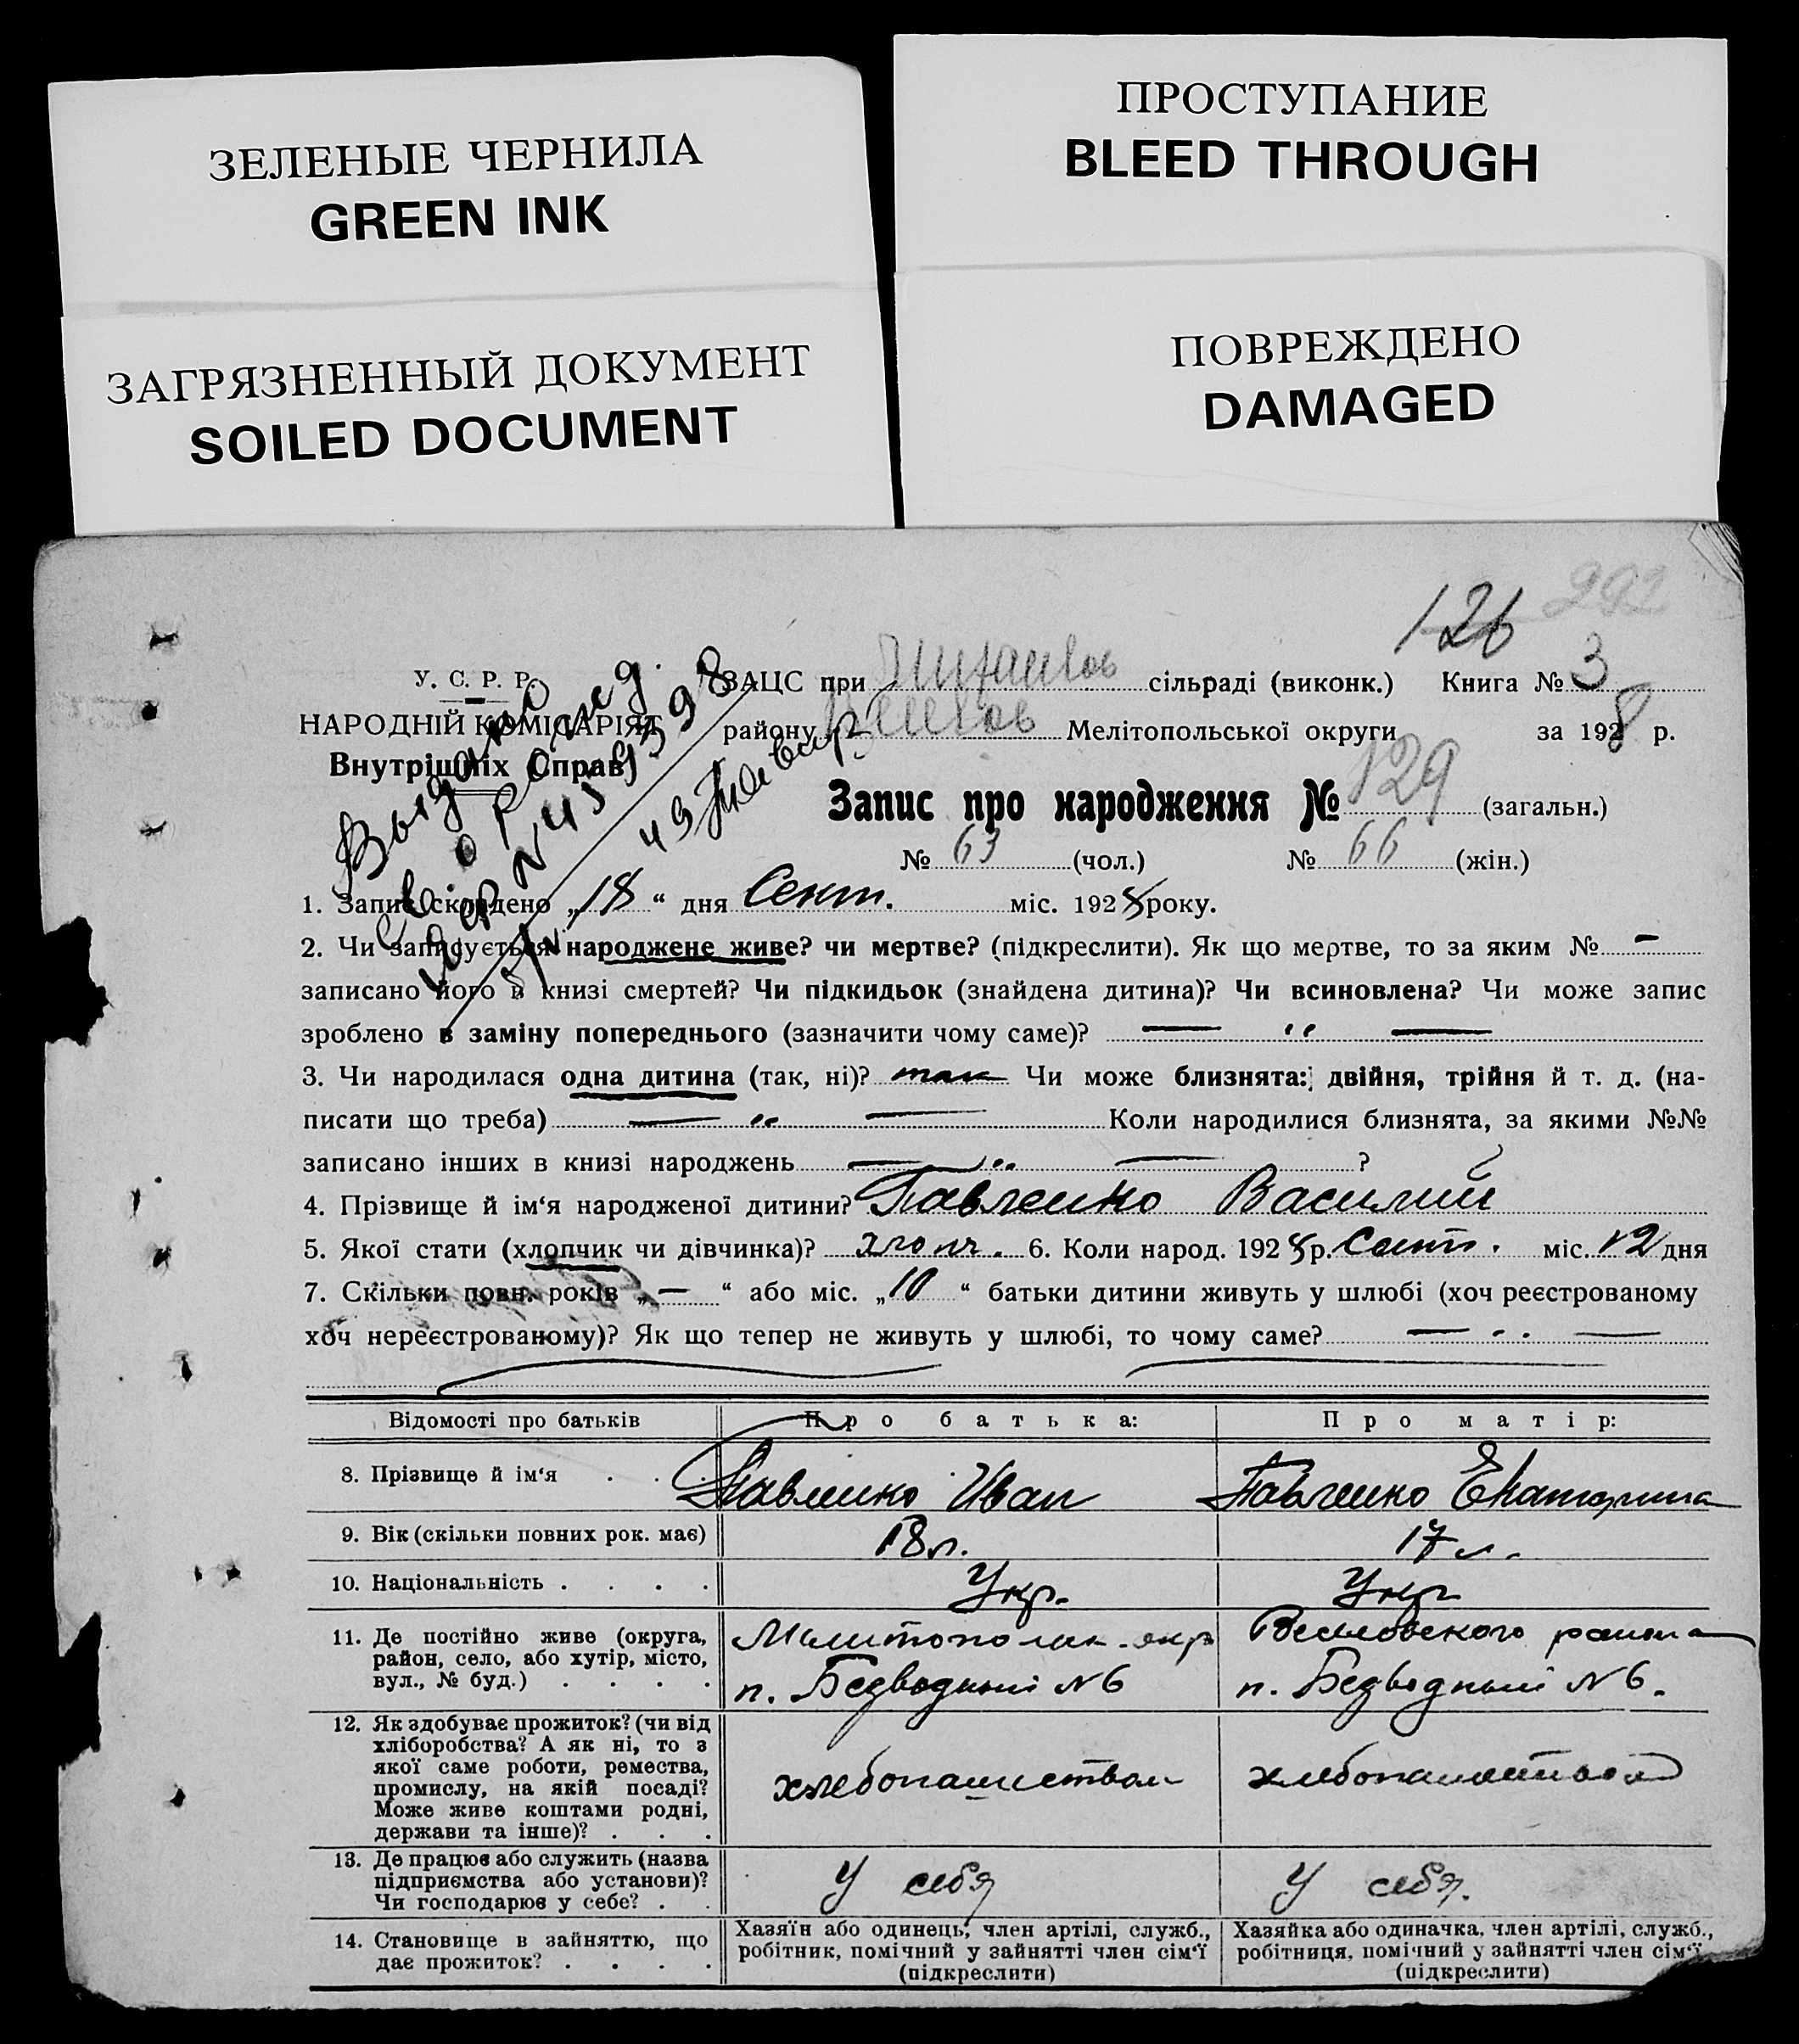 ЗЕЛЕНЫЕ ЧЕРНИЛА
GREEN INK
ПРОСТУПАНИЕ
BLEED THROUGH
ЗАГРЯЗНЕННЫЙ ДОКУМЕНТ
SOILED DOCUMENT
ПОВРЕЖДЕНО
DAMAGED
126
У. С. Р. Р.
НАРОДНІЙ КОМІСАРІЯТ
Внутрішніх Справ
Выдано
св о рожд.
ЗАЦС при сільраді (виконк.) Книга № 3
району Мелітопольської округи за 1928 р.
Запис про народження № 129 (загальн.)
№ 63 (чол.) № 66 (жін.)
1. Запис складено „18“ дня Сент. міс. 1928 року.
2. Чи записується народжене живе? чи мертве? (підкреслити). Як що мертве, то за яким № —
записано його в книзі смертей? Чи підкидьок (знайдена дитина)? Чи всиновлена? Чи може запис
зроблено в заміну попереднього (зазначити чому саме)? — „ —
3. Чи народилася одна дитина (так, ні)? так Чи може близнята: двійня, трійня й т. д. (на-
писати що треба) — „ — Коли народилися близнята, за якими №№
записано інших в книзі народжень — „ — ?
4. Прізвище й ім‘я народженої дитини? Павленко Василий
5. Якої стати (хлопчик чи дівчинка)? хлопч. 6. Коли народ. 1928 р. Сент. міс. 12 дня
7. Скільки повн. років „—“ або міс. „10“ батьки дитини живуть у шлюбі (хоч реєстрованому
хоч нереєстрованому)? Як що тепер не живуть у шлюбі, то чому саме? — „ —
Відомості про батьків Про батька: Про матір:
8. Прізвище й ім‘я . . . Павленко Иван Павленко Екатерина
9. Вік (скільки повних рок. має) 18 л. 17 л.
10. Національність . . . . Укр. Укр
11. Де постійно живе (округа,
район, село, або хутір, місто,
вул., № буд.) . . . .
Мелитополск. окр
п. Бедводный N 6
Веселовского района
п. Бедводный N 6.
12. Як здобуває прожиток? (чи від
хліборобства? А як ні, то з
якої саме роботи, ремества,
промислу, на якій посаді?
Може живе коштами родні,
держави та інше)? . . .
хлебопашеством хлебопашеством
13. Де працює або служить (назва
підприємства або установи)?
Чи господарює у себе? . .
У себя У себя.
14. Становище в зайняттю, що
дає прожиток? . . . .
Хазяїн або одинець, член артілі, служб.,
робітник, помічний у зайнятті член сім‘ї
(підкреслити)
Хазяйка або одиначка, член артілі, служб.,
робітниця, помічний у зайнятті член сім‘ї
(підкреслити)